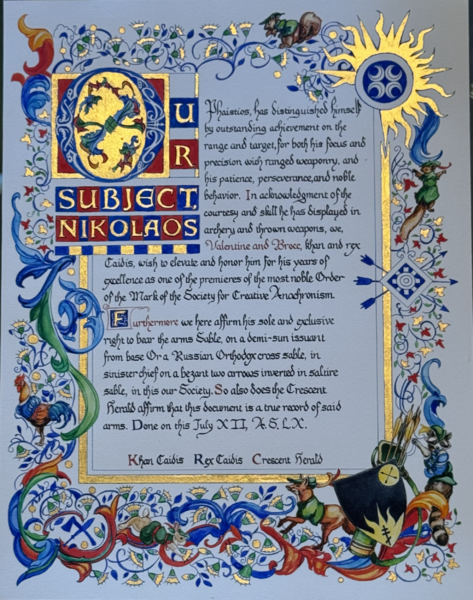 OUR
SUBJECT,
NIKOLAOS
Phaistios, has distinguished himself
by outstanding achievement on the
range and target, for both his focus and
precision with ranged weaponry, and
his patience, perseverance, and noble
behavior. In acknowledgment of the
courtesy and skill he has displayed in
archery and thrown weapons, we,
Valentine and Brocc, khan and rex
Caidis, wish to elevate and honor him for his years of
excellence as one of the premieres of the most noble Order
of the Mark of the Society for Creative Anachronism.
Furthermore we here affirm his sole and exclusive
right to bear the arms Sable, on a demi-sun issuant
from base Or a Russian Orthodox cross sable, in
sinister chief on a bezant two arrows inverted in saltire
sable, in this our Society. So also does the Crescent
Herald affirm that this document is a true record of said
arms. Done on this July XII, A.S. LX.
Khan Caidis Rex Caidis Crescent Herald